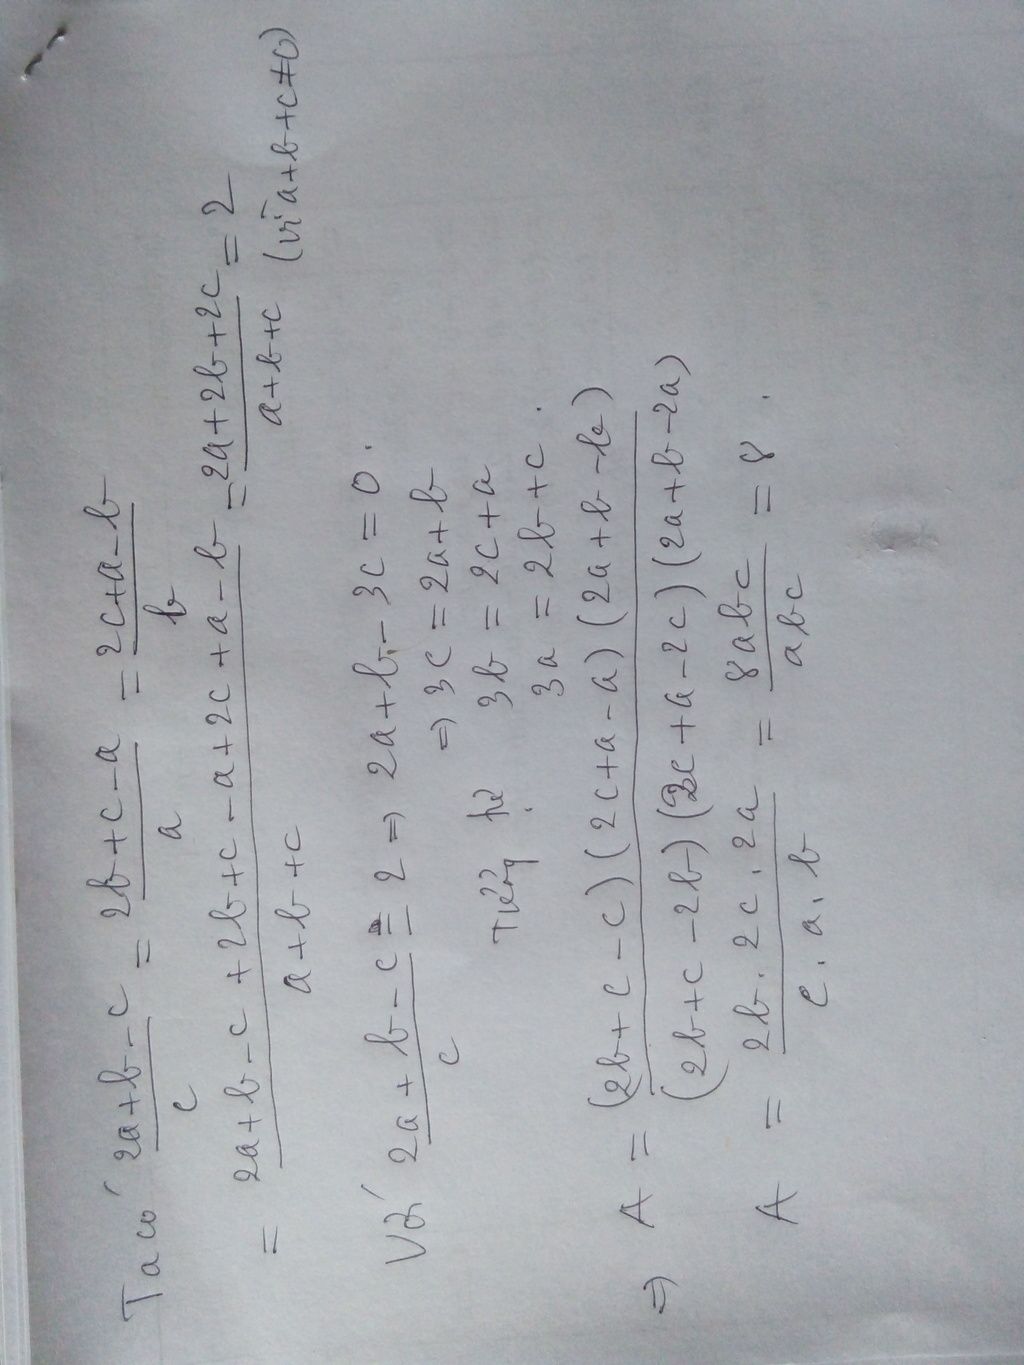 Ta có (2a+b-c)/c = (2b+c-a)/a = (2c+a-b)/b
= (2a+b-c+2b+c-a+2c+a-b)/(a+b+c) = (2a+2b+2c)/(a+b+c) = 2 (vì a+b+c≠0)
Với (2a+b-c)/c = 2 => 2a+b-3c = 0.
=> 3c = 2a+b
Tương tự 3b = 2c+a
3a = 2b+c.
=> A = (2b+c-c)(2c+a-a)(2a+b-b)/(2b+c-2b)(2c+a-2c)(2a+b-2a)
A = (2b.2c.2a)/(c.a.b) = 8abc/abc = 8.